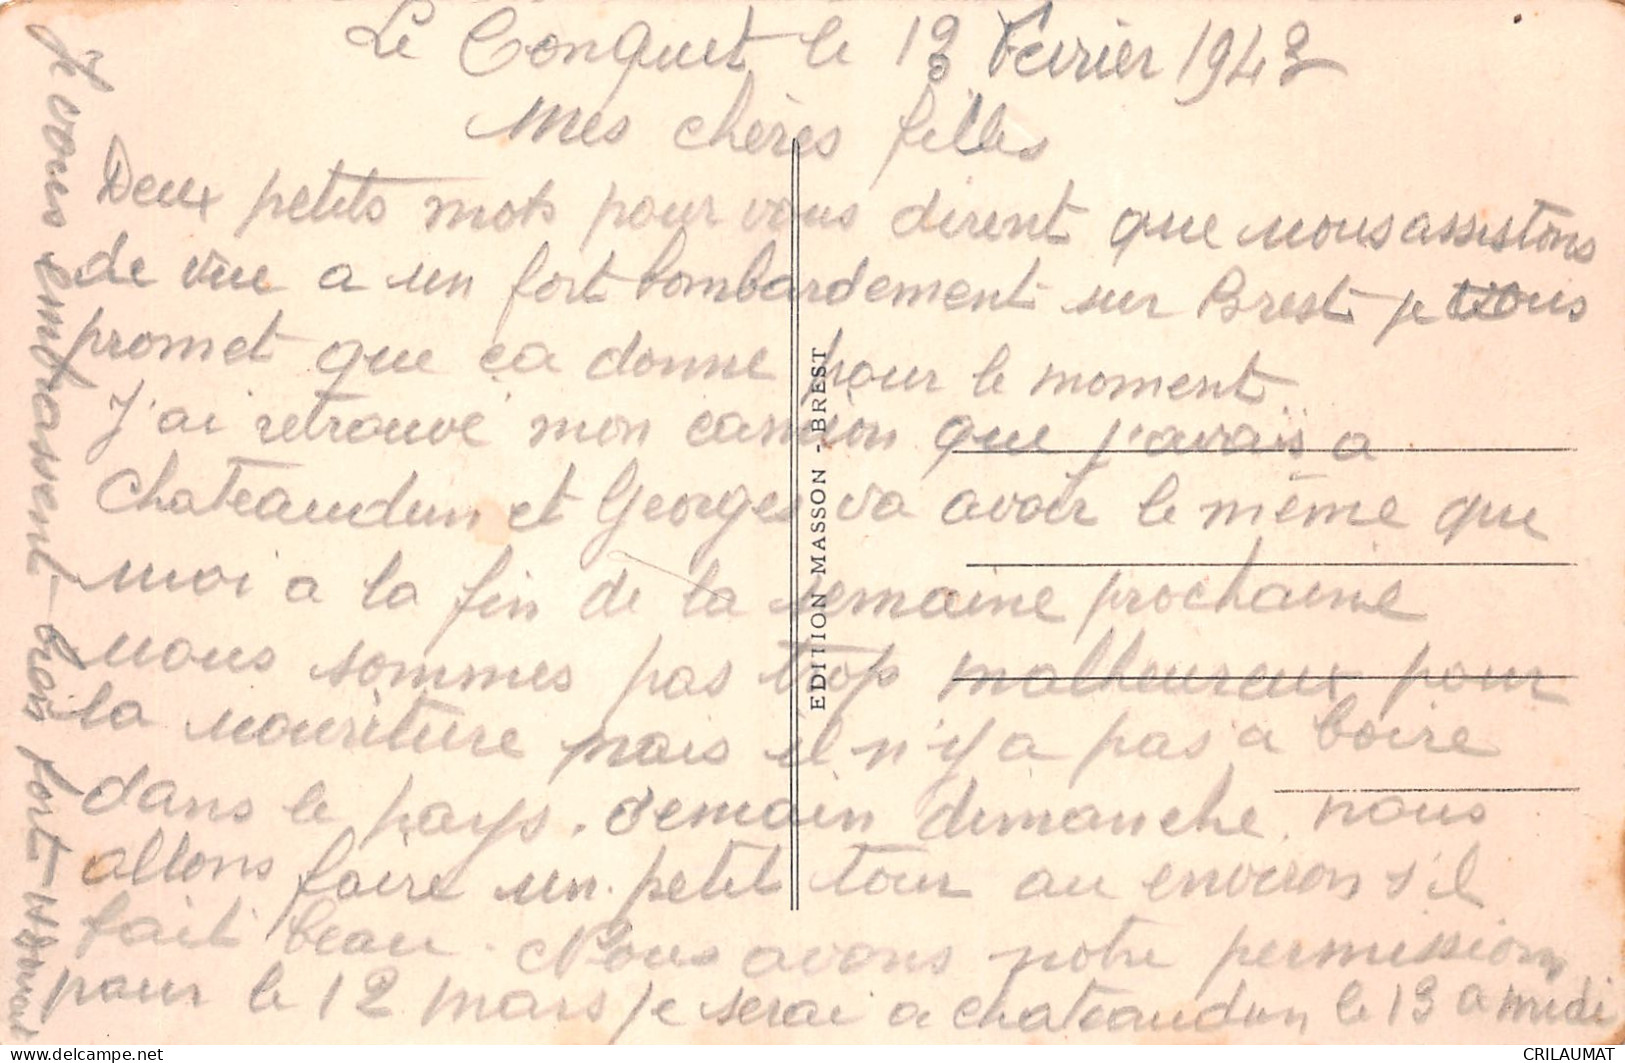 Le Conquet le 13 Fevrier 1943
Mes chères filles
Deux petits mots pour vous dirent que nous assistons
de vue a un fort bombardement sur Brest je vous
promet que ça donne pour le moment
J'ai retrouvé mon camion que j'avais a
chateaudun et Georges va avoir le même que
moi a la fin de la semaine prochaine
nous sommes pas trop malheureux pour
la nouriture mais il n'y a pas a boire
dans le pays. demain dimanche nous
allons faire un petit tour au environ s'il
fait beau. Nous avons notre permission
pour le 12 mars je serai a chateaudun le 13 a midi
Je vous embrassent bien fort
EDITION MASSON - BREST
CRILAUMAT